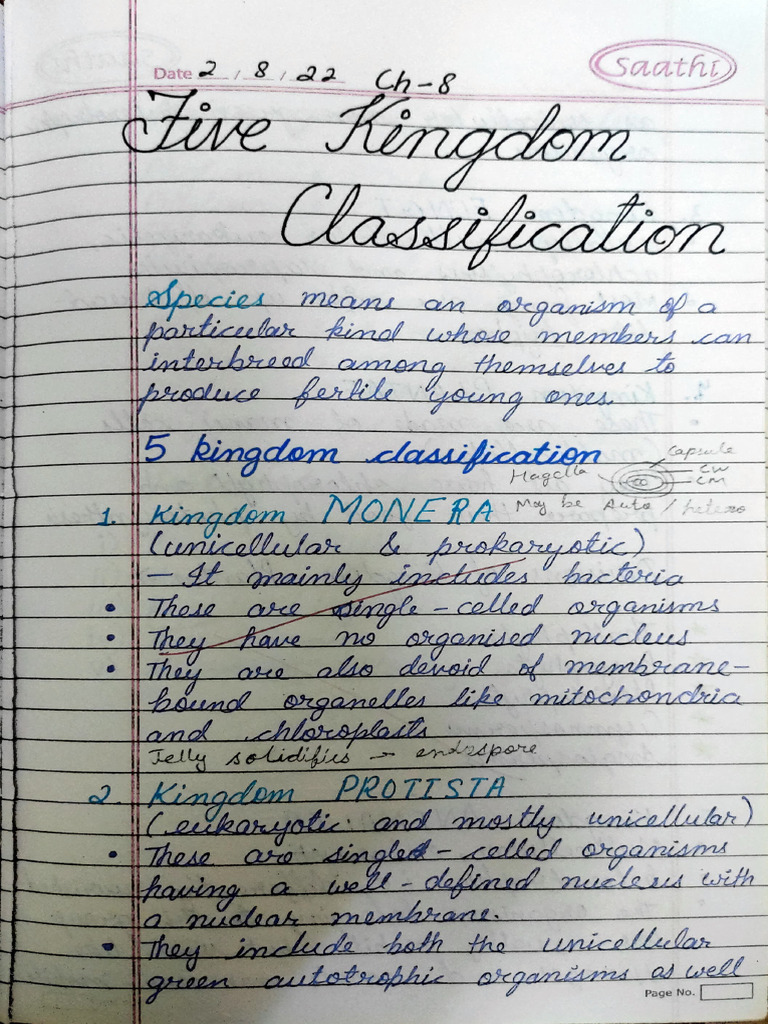 Saathi
Date 2 / 8 / 22 Ch-8
Five Kingdom
Classification
Species means an organism of a
particular kind whose members can
interbreed among themselves to
produce fertile young ones.
5 kingdom classification
Capsule
Flagella CW
CM
May be Auto / hetero
1. Kingdom MONERA
(unicellular & prokaryotic)
- It mainly includes bacteria
• These are single-celled organisms
• They have no organised nucleus
• They are also devoid of membrane-
bound organelles like mitochondria
and chloroplasts
Jelly solidifies → endospore
2. Kingdom PROTISTA
(eukaryotic and mostly unicellular)
• These are single-celled organisms
having a well-defined nucleus with
a nuclear membrane.
• They include both the unicellular
green autotrophic organisms as well
Page No.